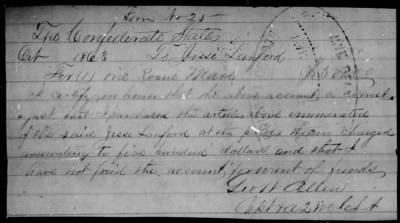 Form No 25
The Confederate States
Oct 1863 To Jesse Lunford
For one Roan Mare
I certify on honor that the above account is correct
& just that I purchased the articles above enumerated
of the said Jesse Lunford at the prices therein charged
amounting to five hundred dollars and that I
have not paid the account for want of funds
Allen
Capt